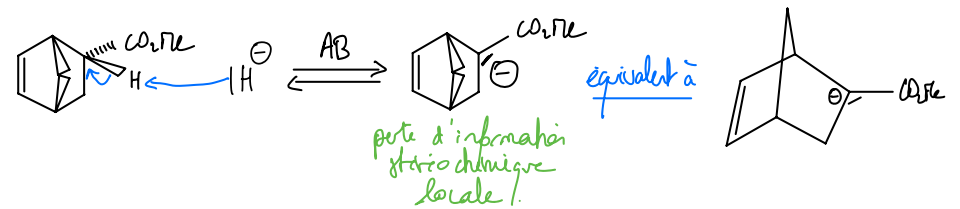 CO₂Me
H
H⊖
AB
CO₂Me
⊖
équivalent à
⊖
CO₂Me
perte d'information
stéréochimique
locale !